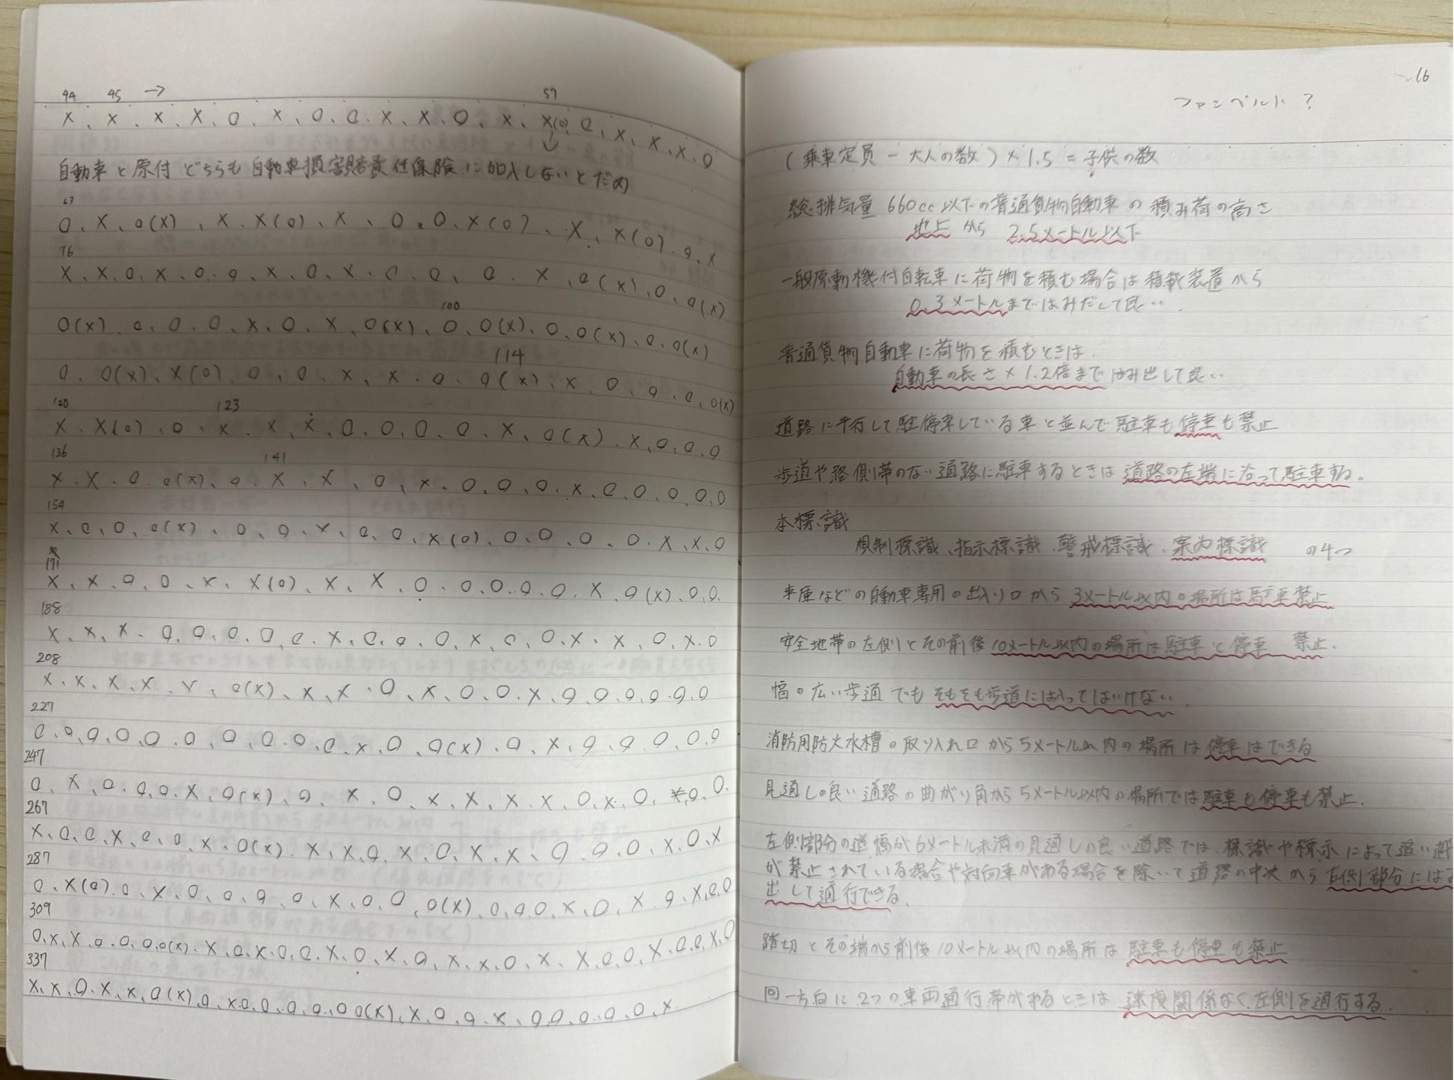 44 45 → 57
X. X. X. X. O. X. O. O. X. X. O. X. X(O). O. X. X. X. O
自動車と原付どちらも自動車損害賠責任保険に加入しないとだめ
63
O. X. O(X). X. X(O). X. O. O. X(O). X. X(O). O. X
76
X. X. O. X. O. O. X. O. X. O. O. O. X. O(X). O. O(X)
100
O(X). O. O. O. X. O. X. O(X). O. O(X). O. O(X). O. O(X)
114
O. O(X). X(O). O. O. X. X. O. O(X). X. O. O. O. O(X)
120 123
X. X(O). O. X. X. X. O. O. O. O. X. O(X). X. O. O. O
136 141
X. X. O. O(X). O. X. X. O. X. O. O. O. X. O. O. O. O. O
154
X. O. O. O(X). O. O. X. O. O. X(O). O. O. O. O. X. X. O
171
X. X. O. O. X. X(O). X. X. O. O. O. O. O. X. O(X). O. O.
188
X. X. X. O. O. O. O. O. X. O. O. O. X. O. O. X. X. O. X. O
208
X. X. X. X. X. O(X). X. X. O. X. O. O. X. O. O. O. O. O. O
227
O. O. O. O. O. O. O. O. O. O. X. O. O(X). O. X. O. O. O. O. O
247
O. X. O. O. O. X. O(X). O. X. O. X. X. X. X. O. X. O. X. O. O.
267
X. O. O. X. O. O. X. O(X). X. X. O. X. O. X. X. O. O. O. X. O. X
287
O. X(O). O. X. O. O. O. O. X. O. O. O(X). O. O. O. X. O. X. O. X. O. O
309
O. X. X. O. O. O. O(X). X. O. X. O. O. X. O. X. O. X. X. O. X. X. O. O. X. O. O. X. O
337
X. X. O. X. X. O(X). O. X. O. O. O. O. O. O(X). X. O. O. X. O. O. O. O. O. X
16
ファンベルト?
(乗車定員 - 大人の数) × 1.5 = 子供の数
総排気量 660cc以下の普通貨物自動車の積み荷の高さ
地上から 2.5メートル以下
一般原動機付自転車に荷物を積む場合は積載装置から
0.3メートルまではみだして良い.
普通貨物自動車に荷物を積むときは.
自動車の長さ×1.2倍まではみ出して良い
道路に平行して駐停車している車と並んで駐車も停車も禁止
歩道や路側帯のない道路に駐車するときは 道路の左端に沿って駐車する。
本標識
規制標識、指示標識、警戒標識、案内標識 の4つ
車庫などの自動車専用の出入り口から 3メートル以内の場所は駐車禁止
安全地帯の左側とその前後10メートル以内の場所は駐車と停車 禁止.
幅の広い歩道でも そもそも歩道にはいってはいけない.
消防用防火水槽の取り入れ口から5メートル以内の場所は 停車はできる
見通しの良い道路の曲がり角から5メートル以内の場所では駐車も停車も禁止.
左側部分の道幅が6メートル未満の見通しの良い道路では 標識や標示によって追い越
が禁止されている場合や対向車がある場合を除いて道路の中央から右側部分には
出して通行できる.
踏切とその端から前後10メートル以内の場所は 駐車も停車も禁止
同一方向に2つの車両通行帯があるときは 速度関係なく左側を通行する.